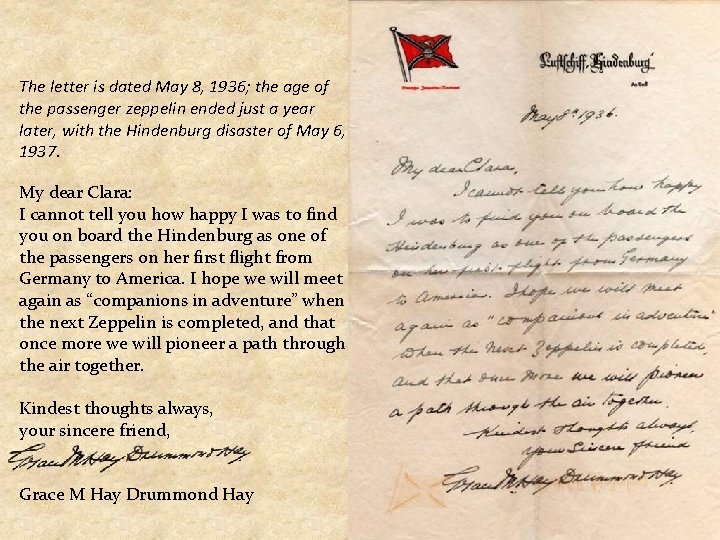 The letter is dated May 8, 1936; the age of
the passenger zeppelin ended just a year
later, with the Hindenburg disaster of May 6,
1937.
My dear Clara:
I cannot tell you how happy I was to find
you on board the Hindenburg as one of
the passengers on her first flight from
Germany to America. I hope we will meet
again as “companions in adventure” when
the next Zeppelin is completed, and that
once more we will pioneer a path through
the air together.
Kindest thoughts always,
your sincere friend,
Grace M Hay Drummond Hay
Grace M Hay Drummond Hay
Luftschiff „Hindenburg“
May 8th 1936.
My dear Clara,
I cannot tell you how happy
I was to find you on board the
Hindenburg as one of the passengers
on her first flight from Germany
to America. I hope we will meet
again as "companions in adventure"
when the next Zeppelin is completed,
and that once more we will pioneer
a path through the air together.
Kindest thoughts always,
your sincere friend
Grace M Hay Drummond Hay